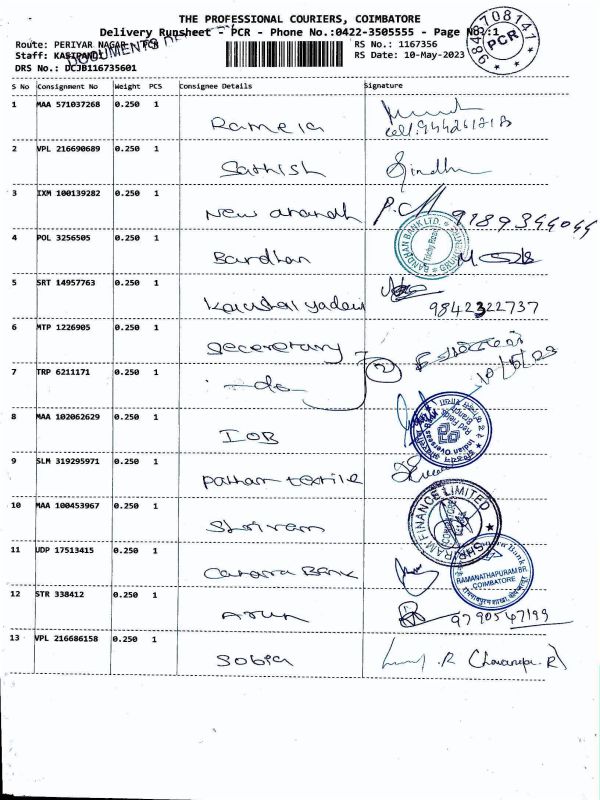 THE PROFESSIONAL COURIERS, COIMBATORE
Delivery Runsheet - PCR - Phone No.:0422-3505555 - Page No.:1
Route: PERIYAR NAGAR - PCR RS No.: 1167356
Staff: KASIPANDI RS Date: 10-May-2023
DRS No.: DCJB116735601
DOCUMENTS
9843708141
PCR
S No Consignment No Weight PCS Consignee Details Signature
1 MAA 571037268 0.250 1 Ramela
2 VPL 216690689 0.250 1 Sathish Sindhu
3 IXM 100139282 0.250 1 New anandh 9189344044
4 POL 3256505 0.250 1 Bandhan
BANDHAN BANK LTD.
5 SRT 14957763 0.250 1 Kaushal yadav 9842322737
6 MTP 1226905 0.250 1 Seceretary 2
7 TRP 6211171 0.250 1 -do-
8 MAA 102062629 0.250 1 IOB
Indian Overseas Bank
Red Fields Branch
9 SLM 319295971 0.250 1 Pathan textile
10 MAA 100453967 0.250 1 Shriram
SHRIRAM FINANCE LIMITED
COIMBATORE
11 UDP 17513415 0.250 1 Canara Bank
RAMANATHAPURAM BR.
COIMBATORE
12 STR 338412 0.250 1 Arun 9790547199
13 VPL 216686158 0.250 1 Sobia